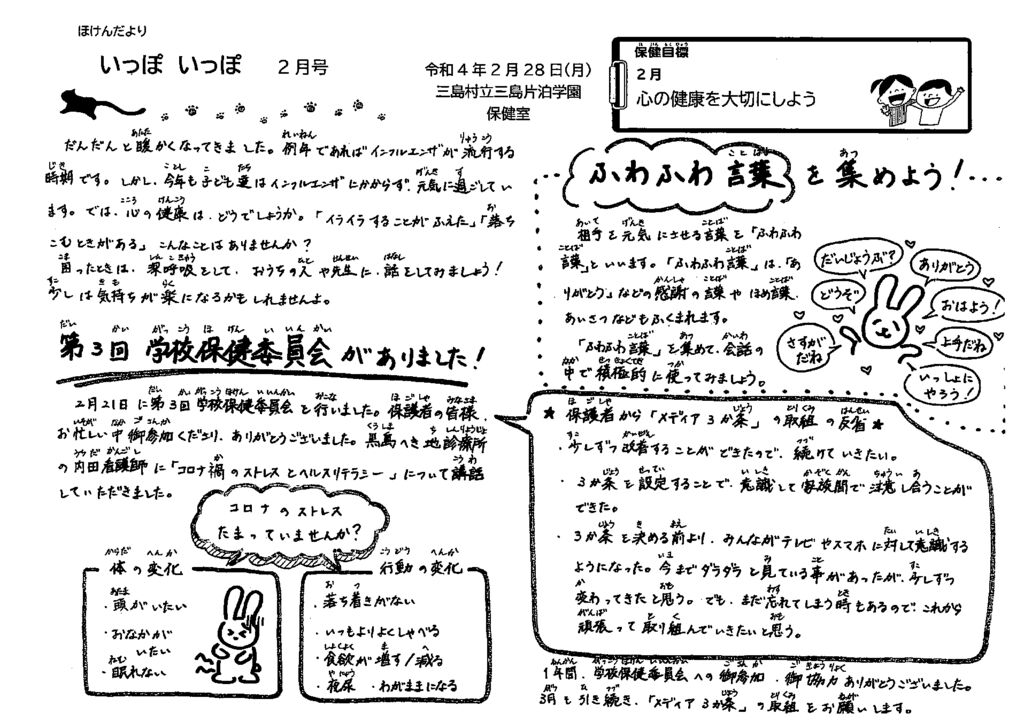 ほけんだより
いっぽ いっぽ 2月号
令和4年2月28日(月)
三島村立三島片泊学園
保健室
保健目標
2月
心の健康を大切にしよう
だんだんと暖かくなってきました。例年であればインフルエンザが流行する
時期です。しかし、今年も子ども達はインフルエンザにかからず、元気に過ごしてい
ます。では、心の健康は、どうでしょうか。「イライラすることがふえた」「落ち
こむときがある」こんなことはありませんか?
困ったときは、深呼吸をして、おうちの人や先生に、話をしてみましょう!
少しは気持ちが楽になるかもしれませんよ。
第3回 学校保健委員会がありました!
2月21日に第3回学校保健委員会を行いました。保護者の皆様、
お忙しい中御参加くださり、ありがとうございました。黒島へき地診療所
の内田看護師に「コロナ禍のストレスとヘルスリテラシー」について講話
していただきました。
コロナのストレス
たまっていませんか?
体の変化
・頭がいたい
・おなかが
いたい
・眠れない
行動の変化
・落ち着きがない
・いつもよりよくしゃべる
・食欲が増す/減る
・夜尿 ・わがままになる
ふわふわ言葉を集めよう!
相手を元気にさせる言葉を「ふわふわ
言葉」といいます。「ふわふわ言葉」は、「あ
りがとう」などの感謝の言葉やほめ言葉、
あいさつなどもふくまれます。
「ふわふわ言葉」を集めて、会話の
中で積極的に使ってみましょう。
だいじょうぶ?
ありがとう
どうぞ
おはよう!
さすが
だね
上手だね
いっしょに
やろう!
★ 保護者から「メディア3か条」の取組の反省 ★
・少しずつ改善することができたので、続けていきたい。
・3か条を設定することで、意識して家族間で注意し合うことが
できた。
・3か条を決める前より、みんながテレビやスマホに対して意識する
ようになった。今までダラダラと見ている事があったが、少しずつ
変わってきたと思う。でも、まだ忘れてしまう時もあるので、これから
頑張って取り組んでいきたいと思う。
1年間、学校保健委員会への御参加、御協力ありがとうございました。
3月も引き続き、「メディア3か条」の取組をお願いします。